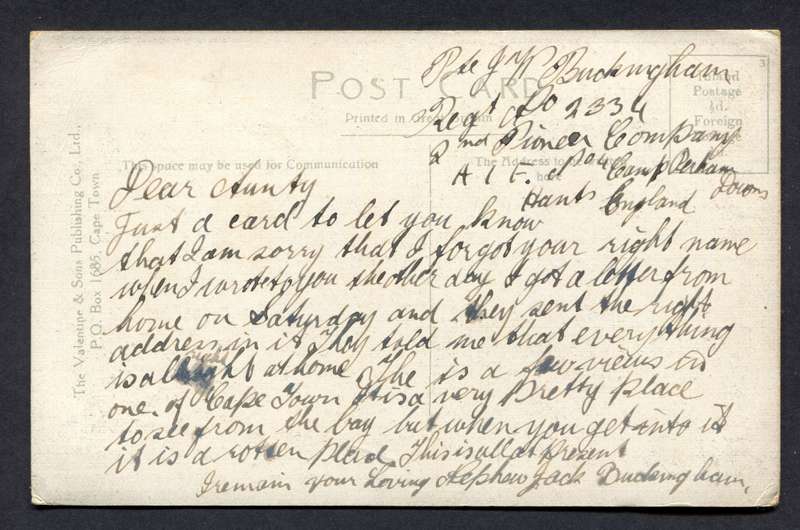 Pte J W Buckingham
POST CARD
Inland
Postage
½d.
Foreign
3
Printed in Great Britain
Regt No 2334
2nd Pioneer Company
This space may be used for Communication
The Address to be
here
A I F. Camp Perham
Downs
Hants England
The Valentine & Sons Publishing Co., Ltd.,
P.O. Box 1685, Cape Town
Dear Aunty
Just a card to let you know
that I am sorry that I forgot your right name
when I wrote to you the other day I got a letter from
home on Saturday and they sent the right
address in it They told me that everything
is all right at home The is a few views is
one. of Cape Town It is a very Pretty Place
to see from the bay but when you get into it
it is a rotten place This is all at present
I remain your Loving Nephew Jack Buckingham.